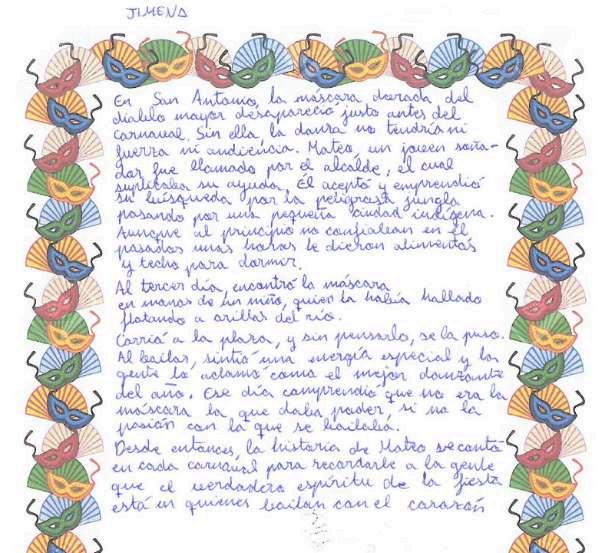 JIMENA
En San Antonio, la máscara dorada del
diablo mayor desapareció justo antes del
carnaval. Sin ella la danza no tendría ni
fuerza ni audiencia. Mateo, un joven soña-
dor fue llamado por el alcalde, el cual
suplicaba su ayuda. Él aceptó y emprendió
su búsqueda por la peligrosa jungla
pasando por una pequeña ciudad indígena.
Aunque al principio no confiaban en él
pasadas unas horas le dieron alimentos
y techo para dormir.
Al tercer día, encontró la máscara
en manos de un niño, quien la había hallado
flotando a orillas del río.
Corrió a la plaza, y sin pensarlo, se la puso.
Al bailar, sintió una energía especial y la
gente lo aclamó como el mejor danzante
del año. Ese día comprendió que no era la
máscara la que daba poder, si no la
pasión con la que se bailaba.
Desde entonces, la historia de Mateo se cuenta
en cada carnaval para recordarle a la gente
que el verdadero espíritu de la fiesta
está en quienes bailan con el corazón